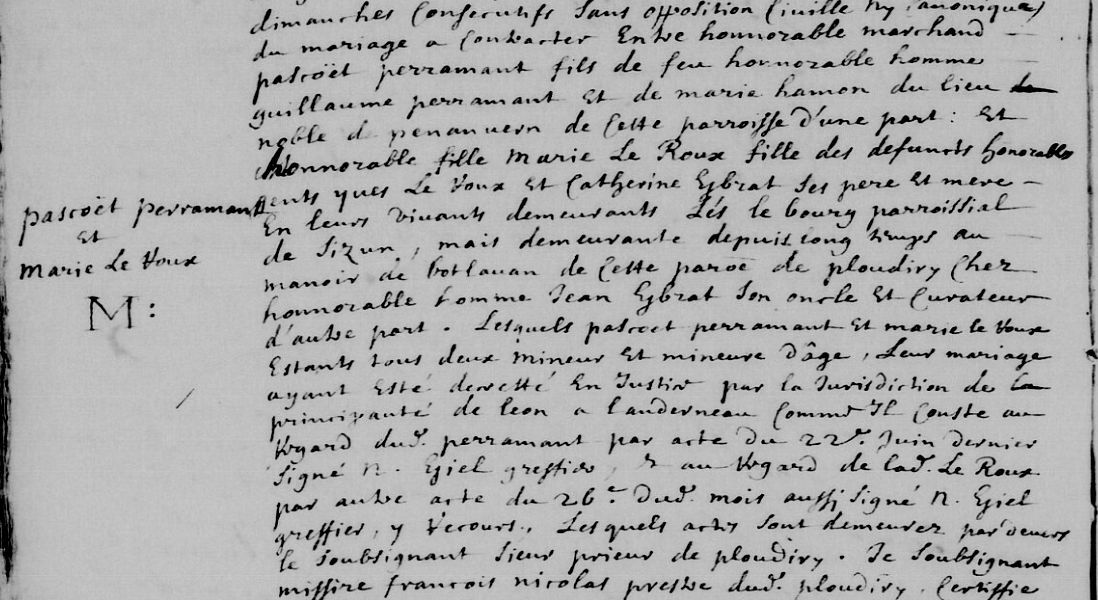 dimanches Consecutifs Sans opposition Civille Ny Canonique
du mariage a Contracter Entre honnorable marchand
pascöet perramant fils de feu honnorable homme
guillaume perramant Et de marie hamon du lieu
noble d penanuern de Cette parroisse d'une part : Et
honnorable fille Marie Le Roux fille des defuncts honorables
gents yues Le Roux Et Catherine Ejbrat Ses pere Et mere
En leurs Viuants demeurants Lés le bourg parroissial
de Sizun, mais demeurante depuis long temps au
manoir de botlauan de Cette paroe de ploudiry Chez
honnorable homme Jean Ejbrat Son oncle Et Curateur
d'autre part . Lesquels pascoet perramant Et marie le Roux
Estants tous deux mineur Et mineure d'âge, Leur mariage
ayant Esté decretté En Justice par la Jurisdiction de la
principauté de leon a landerneau Comme Il Conste au
Regard dud. perramant par acte du 22e. Juin dernier
Signé N. Ejiel greffier, & au Regard de lad. Le Roux
par autre acte du 26e dud. mois aussj Signé N. Ejiel
greffier, y Recours, Lesquels actes Sont demeurez par deuers
le Soubsignant Sieur prieur de ploudiry. Je Soubsignant
missire francois nicolas prestre dud. ploudiry, Certiffie
pascoët perramant
Et
Marie Le Roux
M :